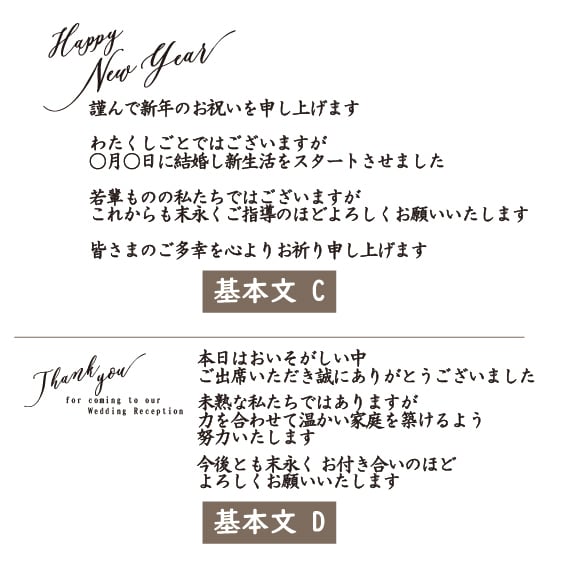 Happy
New Year
謹んで新年のお祝いを申し上げます
わたくしごとではございますが
〇月〇日に結婚し新生活をスタートさせました
若輩ものの私たちではございますが
これからも末永くご指導のほどよろしくお願いいたします
皆さまのご多幸を心よりお祈り申し上げます
基本文 C
Thank you
for coming to our
Wedding Reception
本日はおいそがしい中
ご出席いただき誠にありがとうございました
未熟な私たちではありますが
力を合わせて温かい家庭を築けるよう
努力いたします
今後とも末永く お付き合いのほど
よろしくお願いいたします
基本文 D